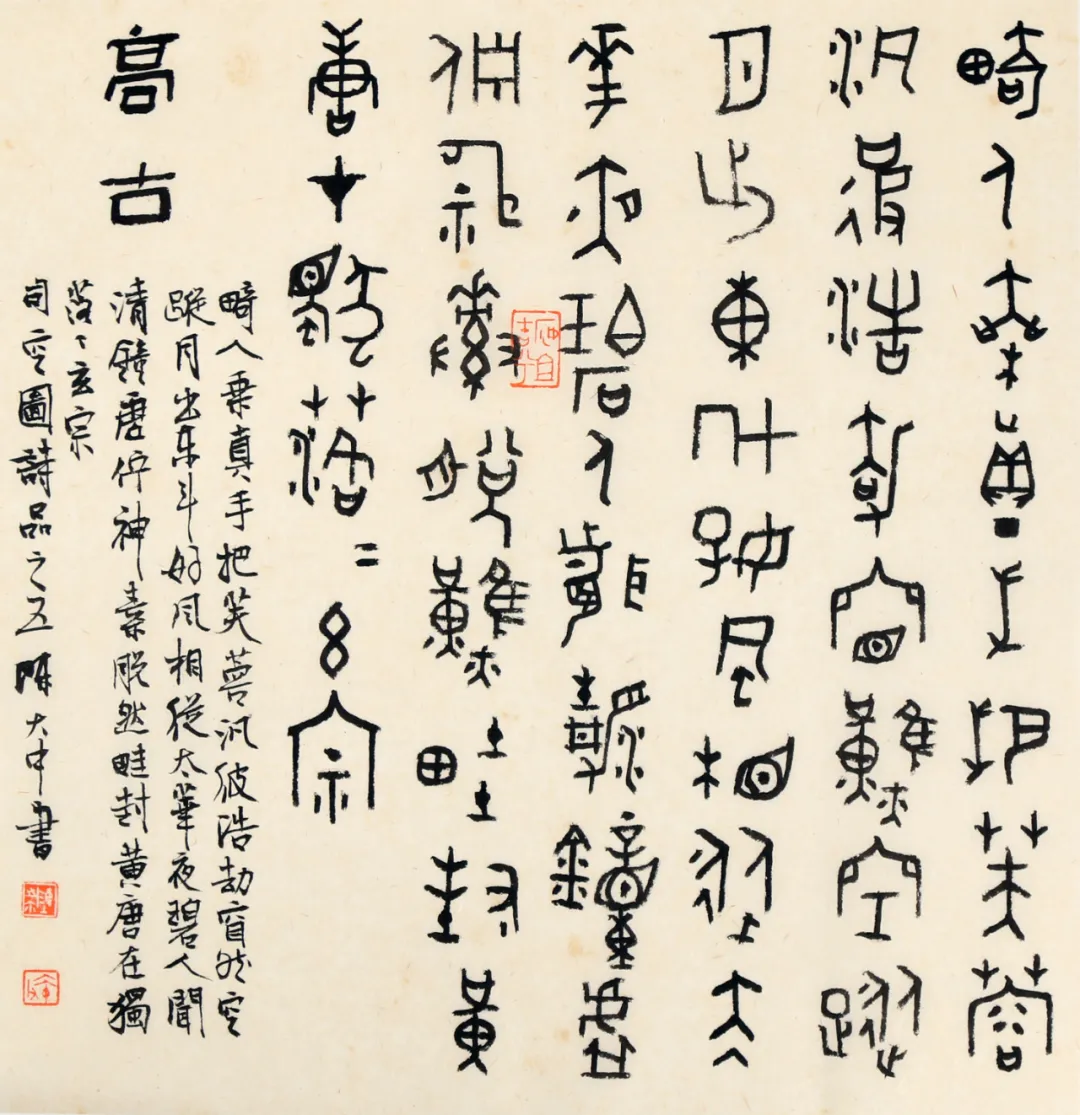 畸人乘真手把芙蓉
汎彼浩劫窅然空蹤
月出東斗好風相從太
華夜碧人聞清鐘虛
佇神素脫然畦封黃
唐在獨落〓玄宗
高古
畸人乘真手把芙蓉汎彼浩劫窅然空
蹤月出東斗好風相從太華夜碧人聞
清鐘虛佇神素脫然畦封黃唐在獨
落〻玄宗
司空圖詩品之五 陳大中書